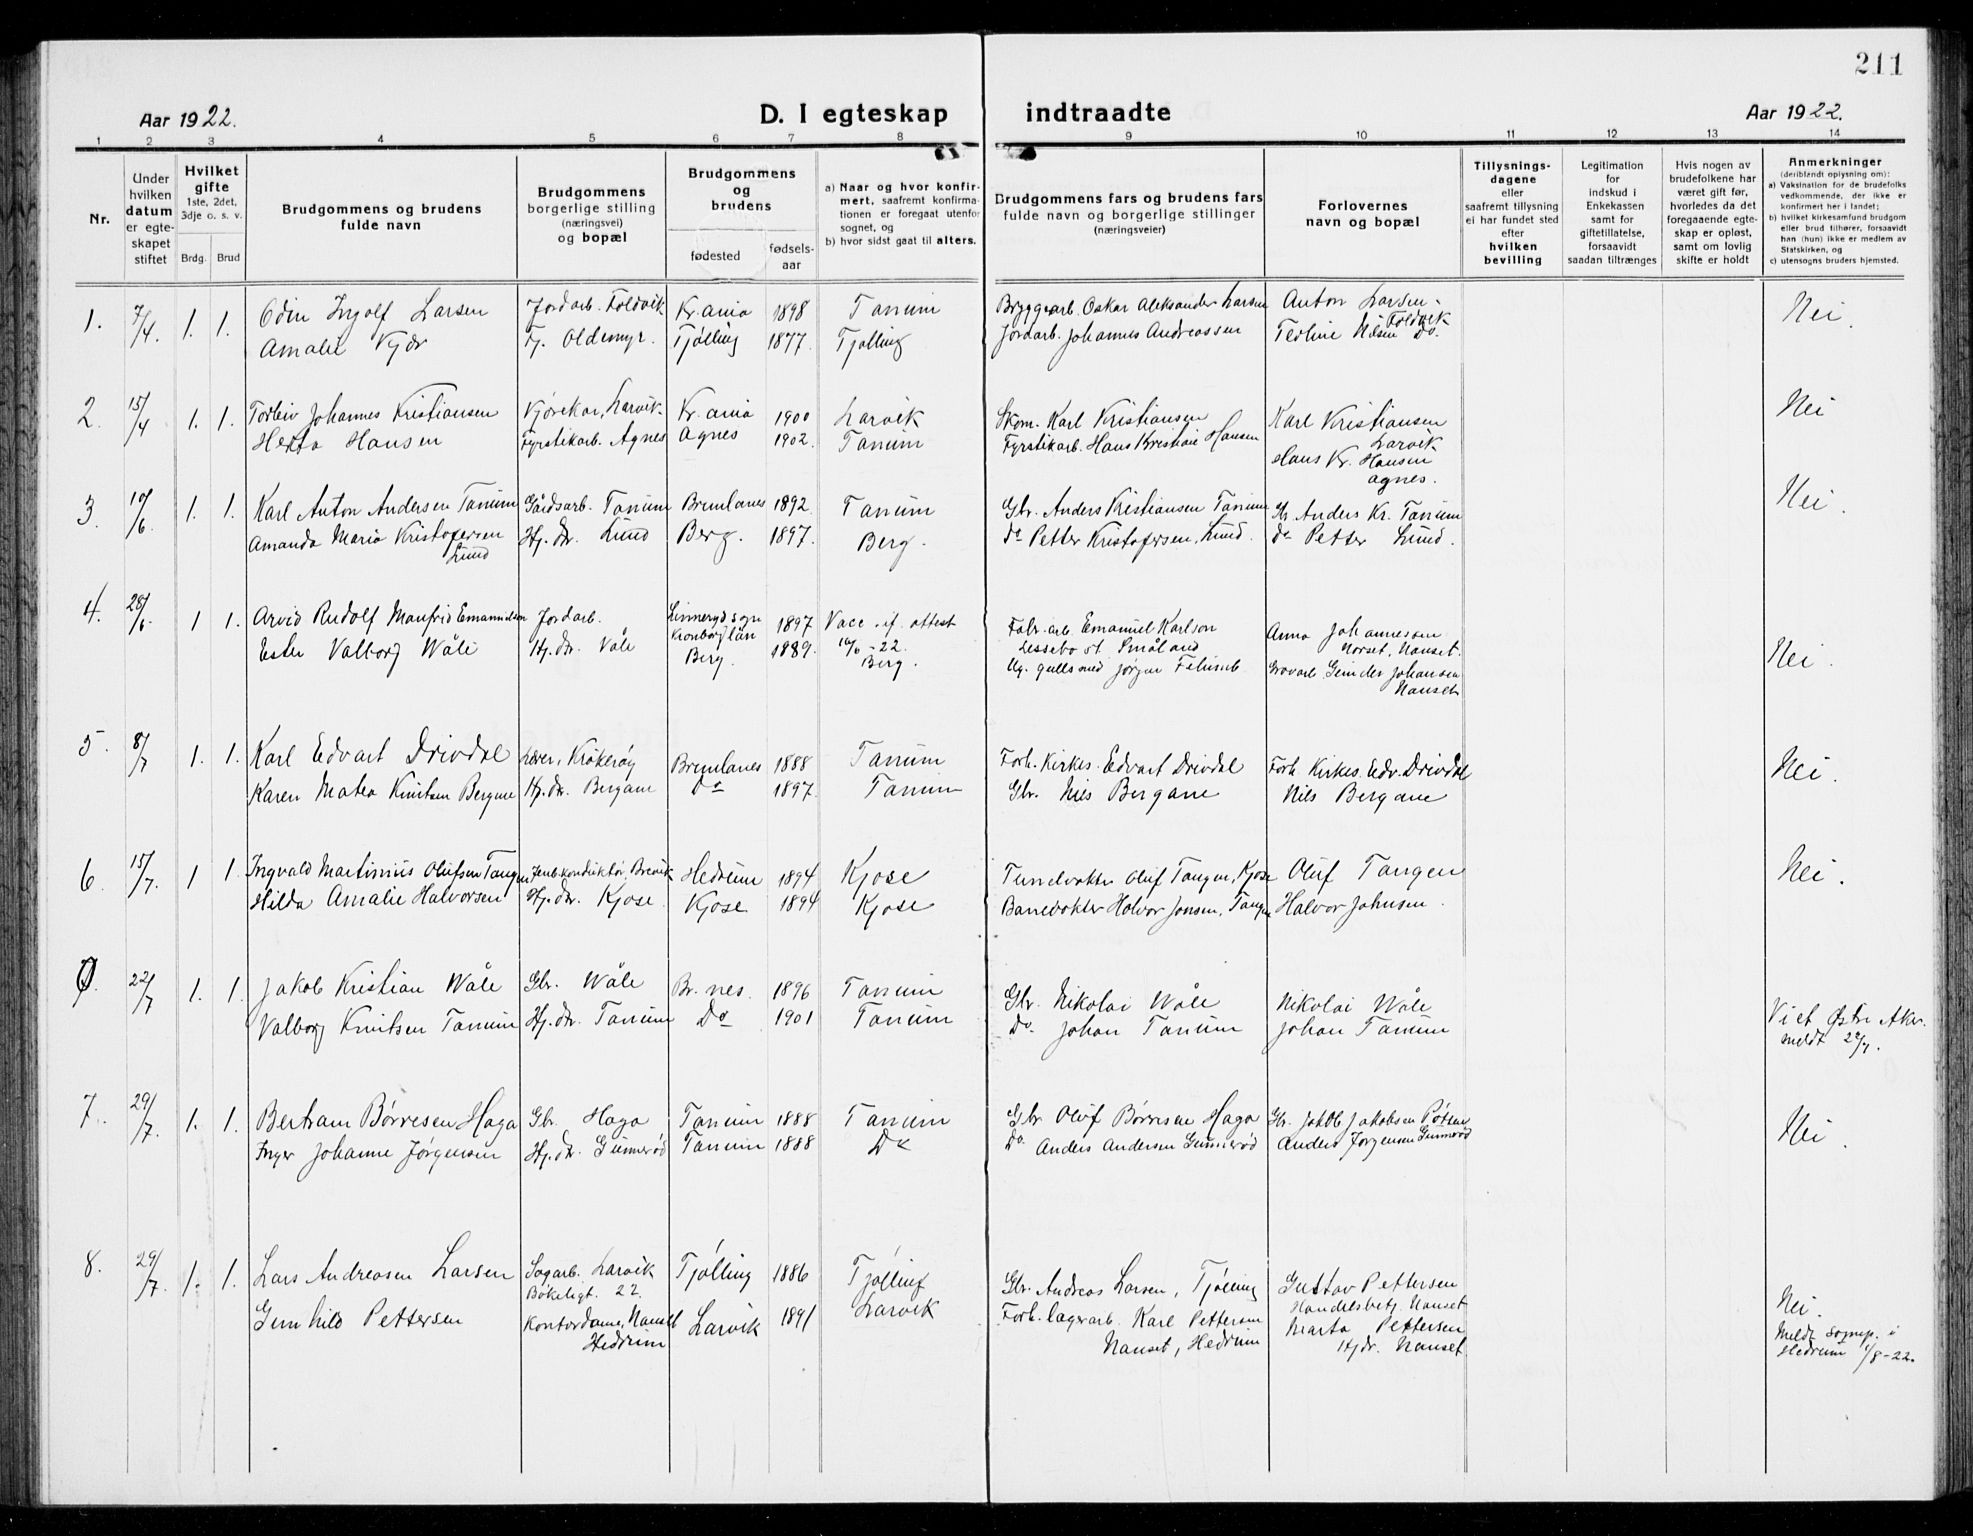 211
Aar 1922.
D. I egteskap indtraadte
Aar 1922.
1 2 3 4 5 6 7 8 9 10 11 12 13 14
Nr.
Under hvilken datum er egteskapet stiftet
Hvilket gifte 1ste, 2det, 3dje o. s. v.
Brdg. Brud
Brudgommens og brudens fulde navn
Brudgommens borgerlige stilling (næringsvei) og bopæl
Brudgommens og brudens
fødested
fødsels-aar
a) Naar og hvor konfirmert, saafremt konfirmationen er foregaat utenfor sognet, og
b) hvor sidst gaat til alters.
Brudgommens fars og brudens fars fulde navn og borgerlige stillinger (næringsveier)
Forlovernes navn og bopæl
Tillysningsdagene eller saafremt tillysning ei har fundet sted efter hvilken bevilling
Legitimation for indskud i Enkekassen samt for giftetillatelse, forsaavidt saadan tiltrænges
Hvis nogen av brudefolkene har været gift før, hvorledes da det foregaaende egteskap er opløst, samt om lovlig skifte er holdt
Anmerkninger (deriblandt oplysning om):
a) Vaksination for de brudefolks vedkommende, der ikke er konfirmert her i landet;
b) hvilket kirkesamfund brudgom eller brud tilhører, forsaavidt han (hun) ikke er medlem av Statskirken, og
c) utensogns bruders hjemsted.
1. 7/4. 1. 1. Odin Ingolf Larsen Jordarb. Foldvik Kr.ania 1898 Tanum Bryggearb. Oskar Aleksander Larsen Anton Larsen Foldvik Nei.
Amalie Kjær Tj. Oldemyr. Tjølling 1877. Tjølling Jordarb. Johannes Andreassen Teoline Nilsen Do.
2. 15/4 1. 1. Torleiv Johannes Kristiansen Kjørekar, Larvik Kr.ania 1900 Larvik Skom. Karl Kristiansen Karl Kristiansen Larvik Nei
Herta Hansen Fyrstikarb. Agnes Agnes 1902. Tanum Fyrstikarb. Hans Kristian Hansen Hans Kr. Hansen Agnes.
3. 10/6. 1. 1. Karl Anton Andersen Tanum Gårdsarb. Tanum Brunlanes 1892. Tanum Gbr. Anders Kristiansen Tanum Gbr. Anders Kr. Tanum Nei.
Amanda Maria Kristofersen Lund Hj. dr. Lund Berg. 1897. Berg. Do Petter Kristofersen, Lund. Do Petter Lund.
4. 28/6. 1 1. Arvid Rudolf Manfrid Emanuelson Jordarb. Linneryd sogn Kronborg län 1897 Vacc. if. attest 10/6-22. Fabr. arb. Emanuel Karlson Lessebo st. Småland Anna Johannesen Norset, Nanset. Nei.
Ester Valborg Wåle Hj. dr. Våle Berg. 1889. Berg. Ug. gullsmed Jørgen Felumb Grovarb. Gunder Johansen Nanset
5. 8/7 1. 1. Karl Edvart Drivdal Lærer, Kråkerøy Brunlanes 1888 Tanum Forh. Kirkes. Edvart Drivdal Forh. Kirkes. Edv. Drivdal Nei.
Karen Matea Knutsen Bergane Hj. dr. Bergane Do 1897. Tanum Gbr. Nils Bergane Nils Bergane
6. 15/7. 1 1. Ingvald Martinius Olufsen Tangen Jernb.konduktør, Brevik Hedrum 1894 Kjose Tunelvokter Oluf Tangen, Kjose Oluf Tangen Nei.
Hilda Amalie Halvorsen Hj. dr. Kjose. Kjose 1894 Kjose Banevokter Halvor Jonsen, Tangen Halvor Johnsen.
0. 22/7 1. 1. Jakob Kristian Wåle Gbr. Wåle Br.nes. 1896 Tanum Gbr. Nikolai Wåle Nikolai Wåle Viet Østre Aker. meldt 22/7.
Valborg Knutsen Tanum Hj. dr. Tanum Do 1901 Tanum Do. Johan Tanum Johan Tanum
7. 29/7. 1. 1. Bertram Børresen Haga Gbr. Haga Tanum 1888 Tanum Gbr. Oluf Børresen Haga Gbr. Jakob Jakobsen Nei.
Inger Johanne Jørgensen Hj. dr. Gunnerød Tanum 1888 Do Do. Anders Andersen Gunnerød Anders Jørgensen Gunnerød
8. 29/7. 1. 1. Lars Andreasen Larsen Sagarb. Larvik Bøkeligt. 22. Tjølling 1886 Tjølling Gbr. Andreas Larsen, Tjølling Gustav Pettersen Handelsbetj. Nanset Nei.
Gunhild Pettersen Kontordame, Nanset Hedrum Larvik 1891 Larvik Forh. lagerarb. Karl Pettersen Nanset, Hedrum Marta Pettersen Hj.dr. Nanset. Meldt sognep. i Hedrum 1/8-22.